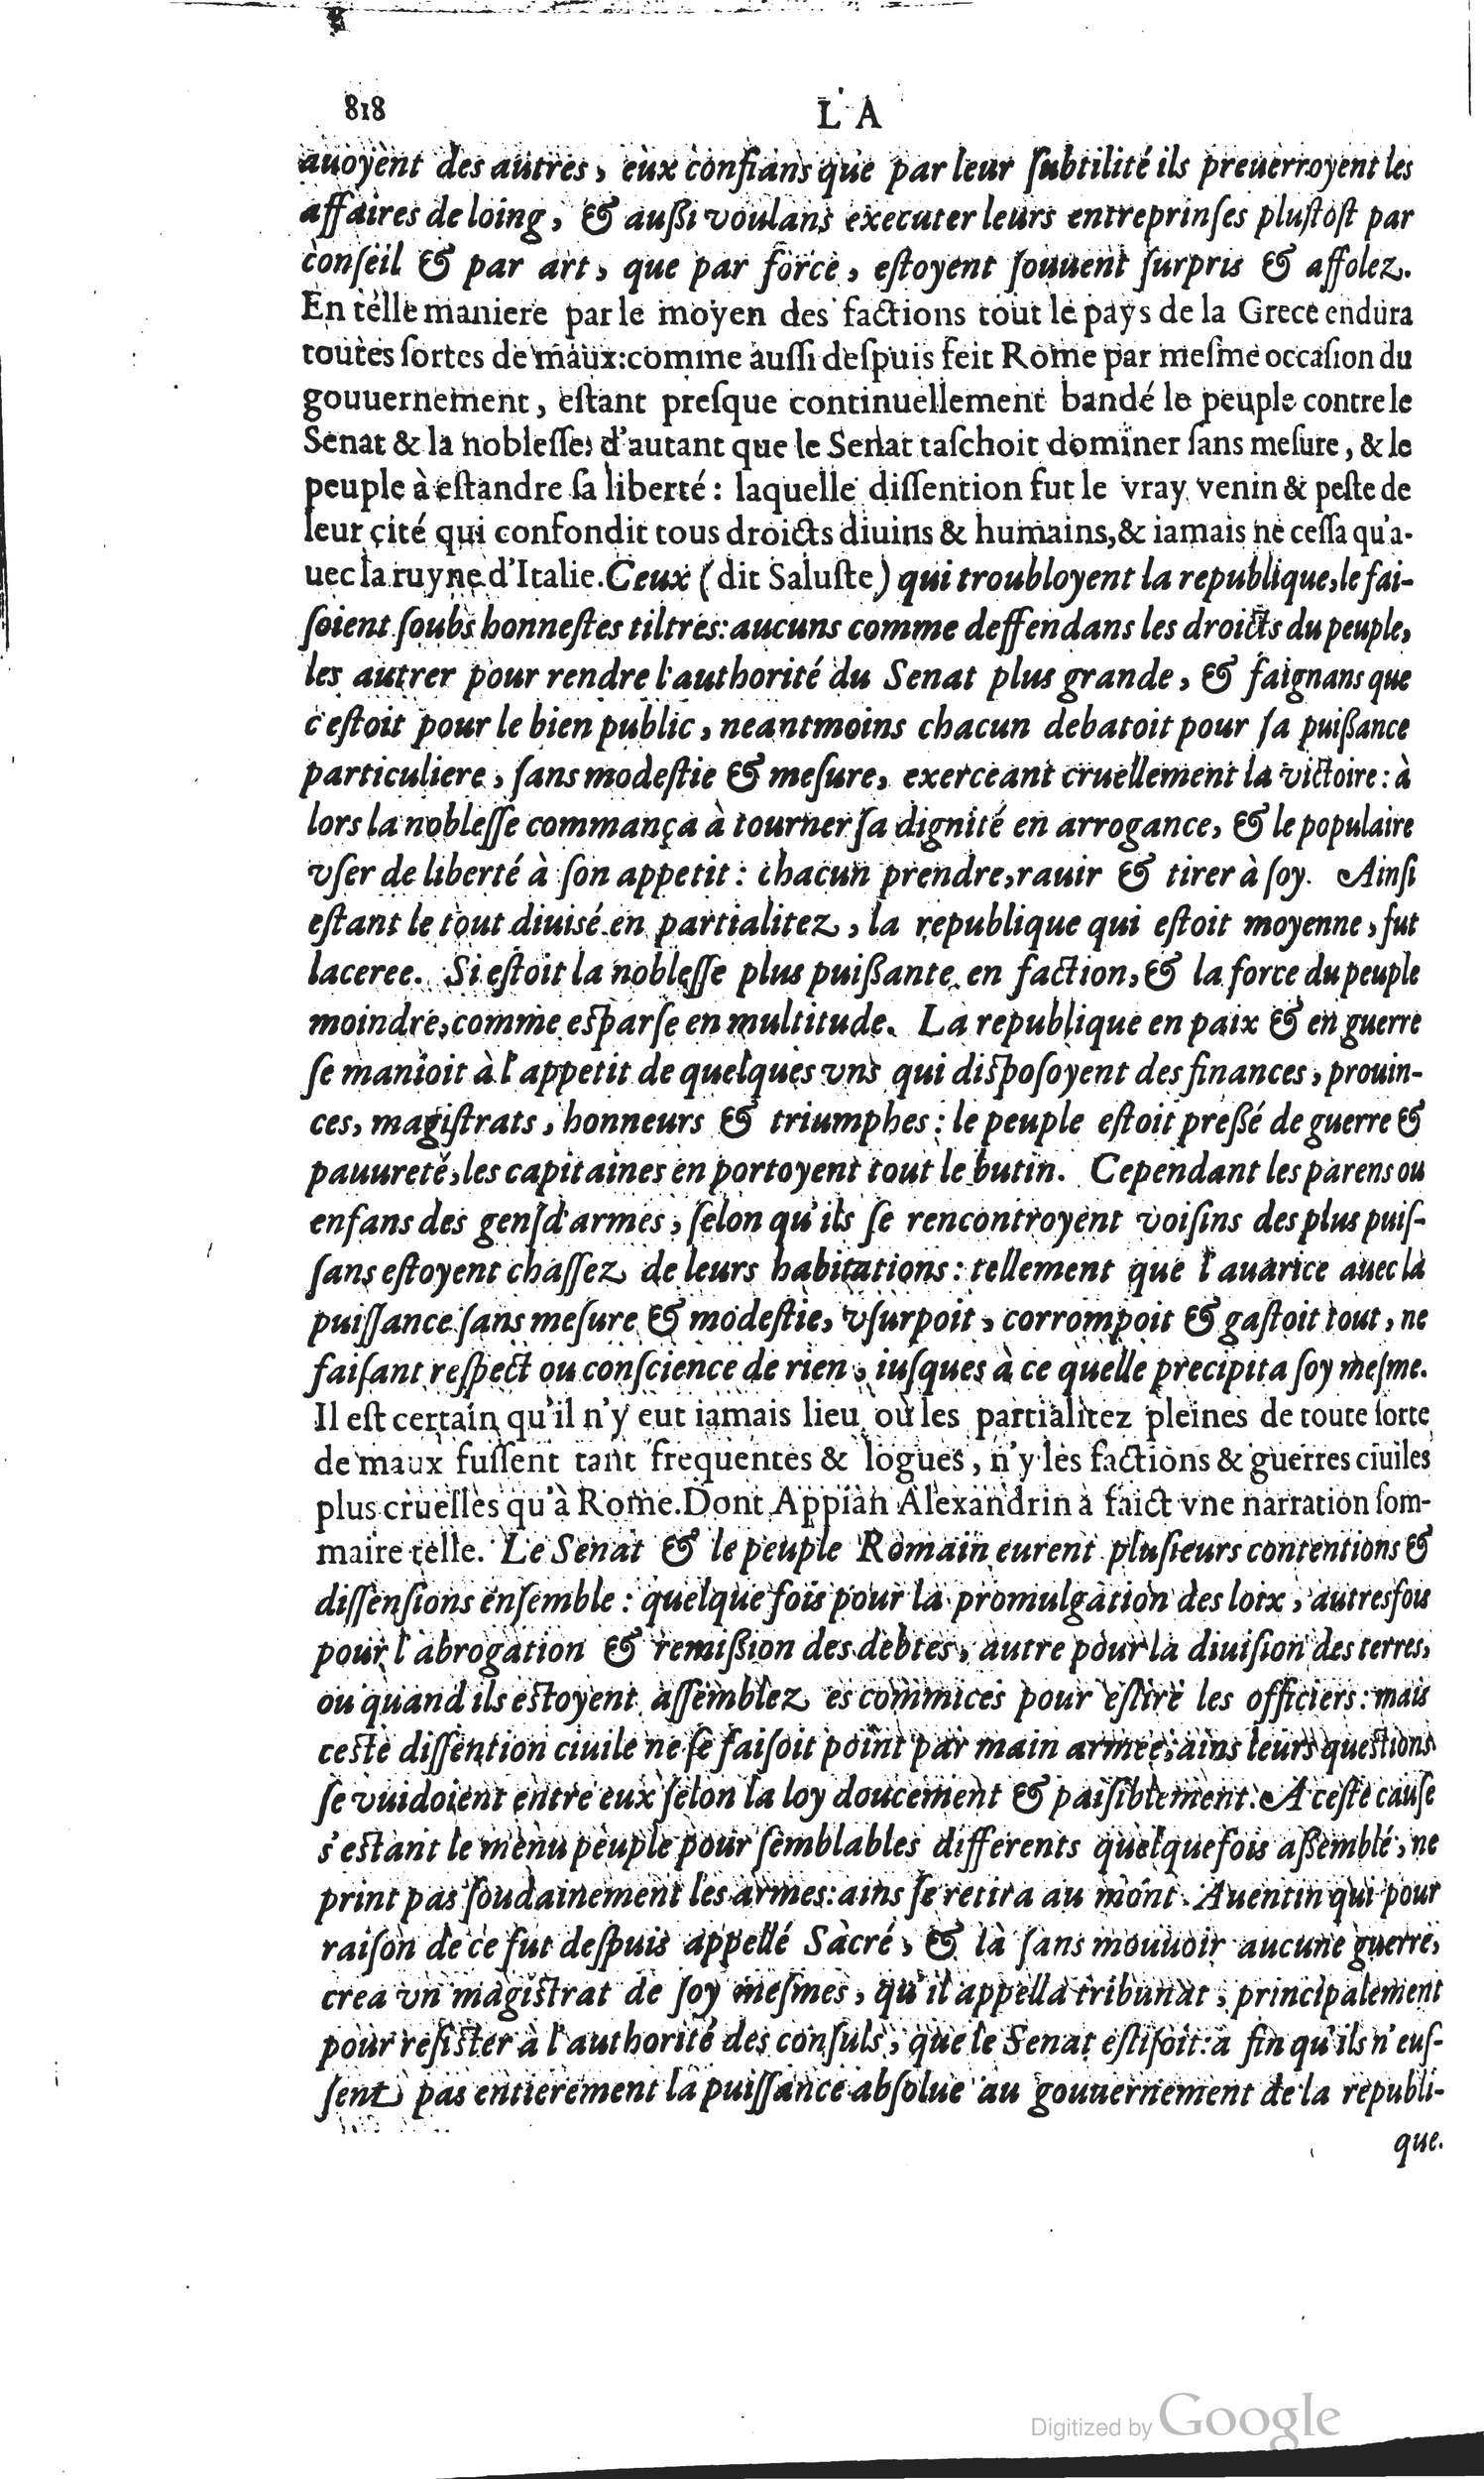 818 L'A
auoyent des autres, eux confians que par leur ſubtilité ils preuerroyent les
affaires de loing, & außi voulans executer leurs entreprinſes pluſtoſt par
conſeil & par art, que par force, eſtoyent ſouuent ſurpris & affolez.
En telle maniere par le moyen des factions tout le pays de la Grece endura
toutes ſortes de maux: comme auſſi deſpuis feit Rome par meſme occaſion du
gouuernement, eſtant preſque continuellement bandé le peuple contre le
Senat & la nobleſſe: d'autant que le Senat taſchoit dominer ſans meſure, & le
peuple à eſtandre ſa liberté: laquelle diſſention fut le vray venin & peſte de
leur cité qui confondit tous droicts diuins & humains, & iamais ne ceſſa qu'a-
uec la ruyne d'Italie. Ceux (dit Saluſte) qui troubloyent la republique, le fai-
ſoient ſoubs honneſtes tiltres: aucuns comme deffendans les droicts du peuple,
les autrer pour rendre l'authorité du Senat plus grande, & faignans que
c'eſtoit pour le bien public, neantmoins chacun debatoit pour ſa puißance
particuliere, ſans modeſtie & meſure, exerceant cruellement la victoire: à
lors la nobleſſe commança à tourner ſa dignité en arrogance, & le populaire
vſer de liberté à ſon appetit: chacun prendre, rauir & tirer à ſoy. Ainſi
eſtant le tout diuisé en partialitez, la republique qui eſtoit moyenne, fut
laceree. Si eſtoit la nobleſſe plus puißante en faction, & la force du peuple
moindre, comme eſparſe en multitude. La republique en paix & en guerre
ſe manioit à l'appetit de quelques vns qui diſpoſoyent des finances, prouin-
ces, magiſtrats, honneurs & triumphes: le peuple eſtoit preßé de guerre &
pauureté, les capitaines en portoyent tout le butin. Cependant les parens ou
enfans des genſd'armes, ſelon qu'ils ſe rencontroyent voiſins des plus puiſ-
ſans eſtoyent chaſſez de leurs habitations: tellement que l'auarice auec la
puiſſance ſans meſure & modeſtie, vſurpoit, corrompoit & gaſtoit tout, ne
faiſant reſpect ou conſcience de rien, iuſques à ce quelle precipita ſoy meſme.
Il eſt certain qu'il n'y eut iamais lieu où les partialitez pleines de toute ſorte
de maux fuſſent tant frequentes & logues, n'y les factions & guerres ciuiles
plus cruelles qu'à Rome. Dont Appian Alexandrin a faict vne narration ſom-
maire telle. Le Senat & le peuple Romain eurent pluſieurs contentions &
diſſenſions enſemble: quelque fois pour la promulgation des loix, autresfois
pour l'abrogation & remißion des debtes, autre pour la diuiſion des terres,
ou quand ils eſtoyent aſſemblez es commices pour eſlire les officiers: mais
ceſte diſſention ciuile ne ſe faiſoit point par main armee, ains leurs queſtions
ſe vuidoient entre eux ſelon la loy doucement & paiſiblement. A ceſte cauſe
s'eſtant le menu peuple pour ſemblables differents quelque fois aßemblé, ne
print pas ſoudainement les armes: ains ſe retira au mont Auentin qui pour
raiſon de ce fut deſpuis appellé Sacré, & là ſans mouuoir aucune guerre,
crea vn magiſtrat de ſoy meſmes, qu'il appella tribunat, principalement
pour reſiſter à l'authorité des conſuls, que le Senat eſliſoit: à fin qu'ils n'euſ-
ſent pas entierement la puiſſance abſolue au gouuernement de la republi-
que.
Digitized by Google